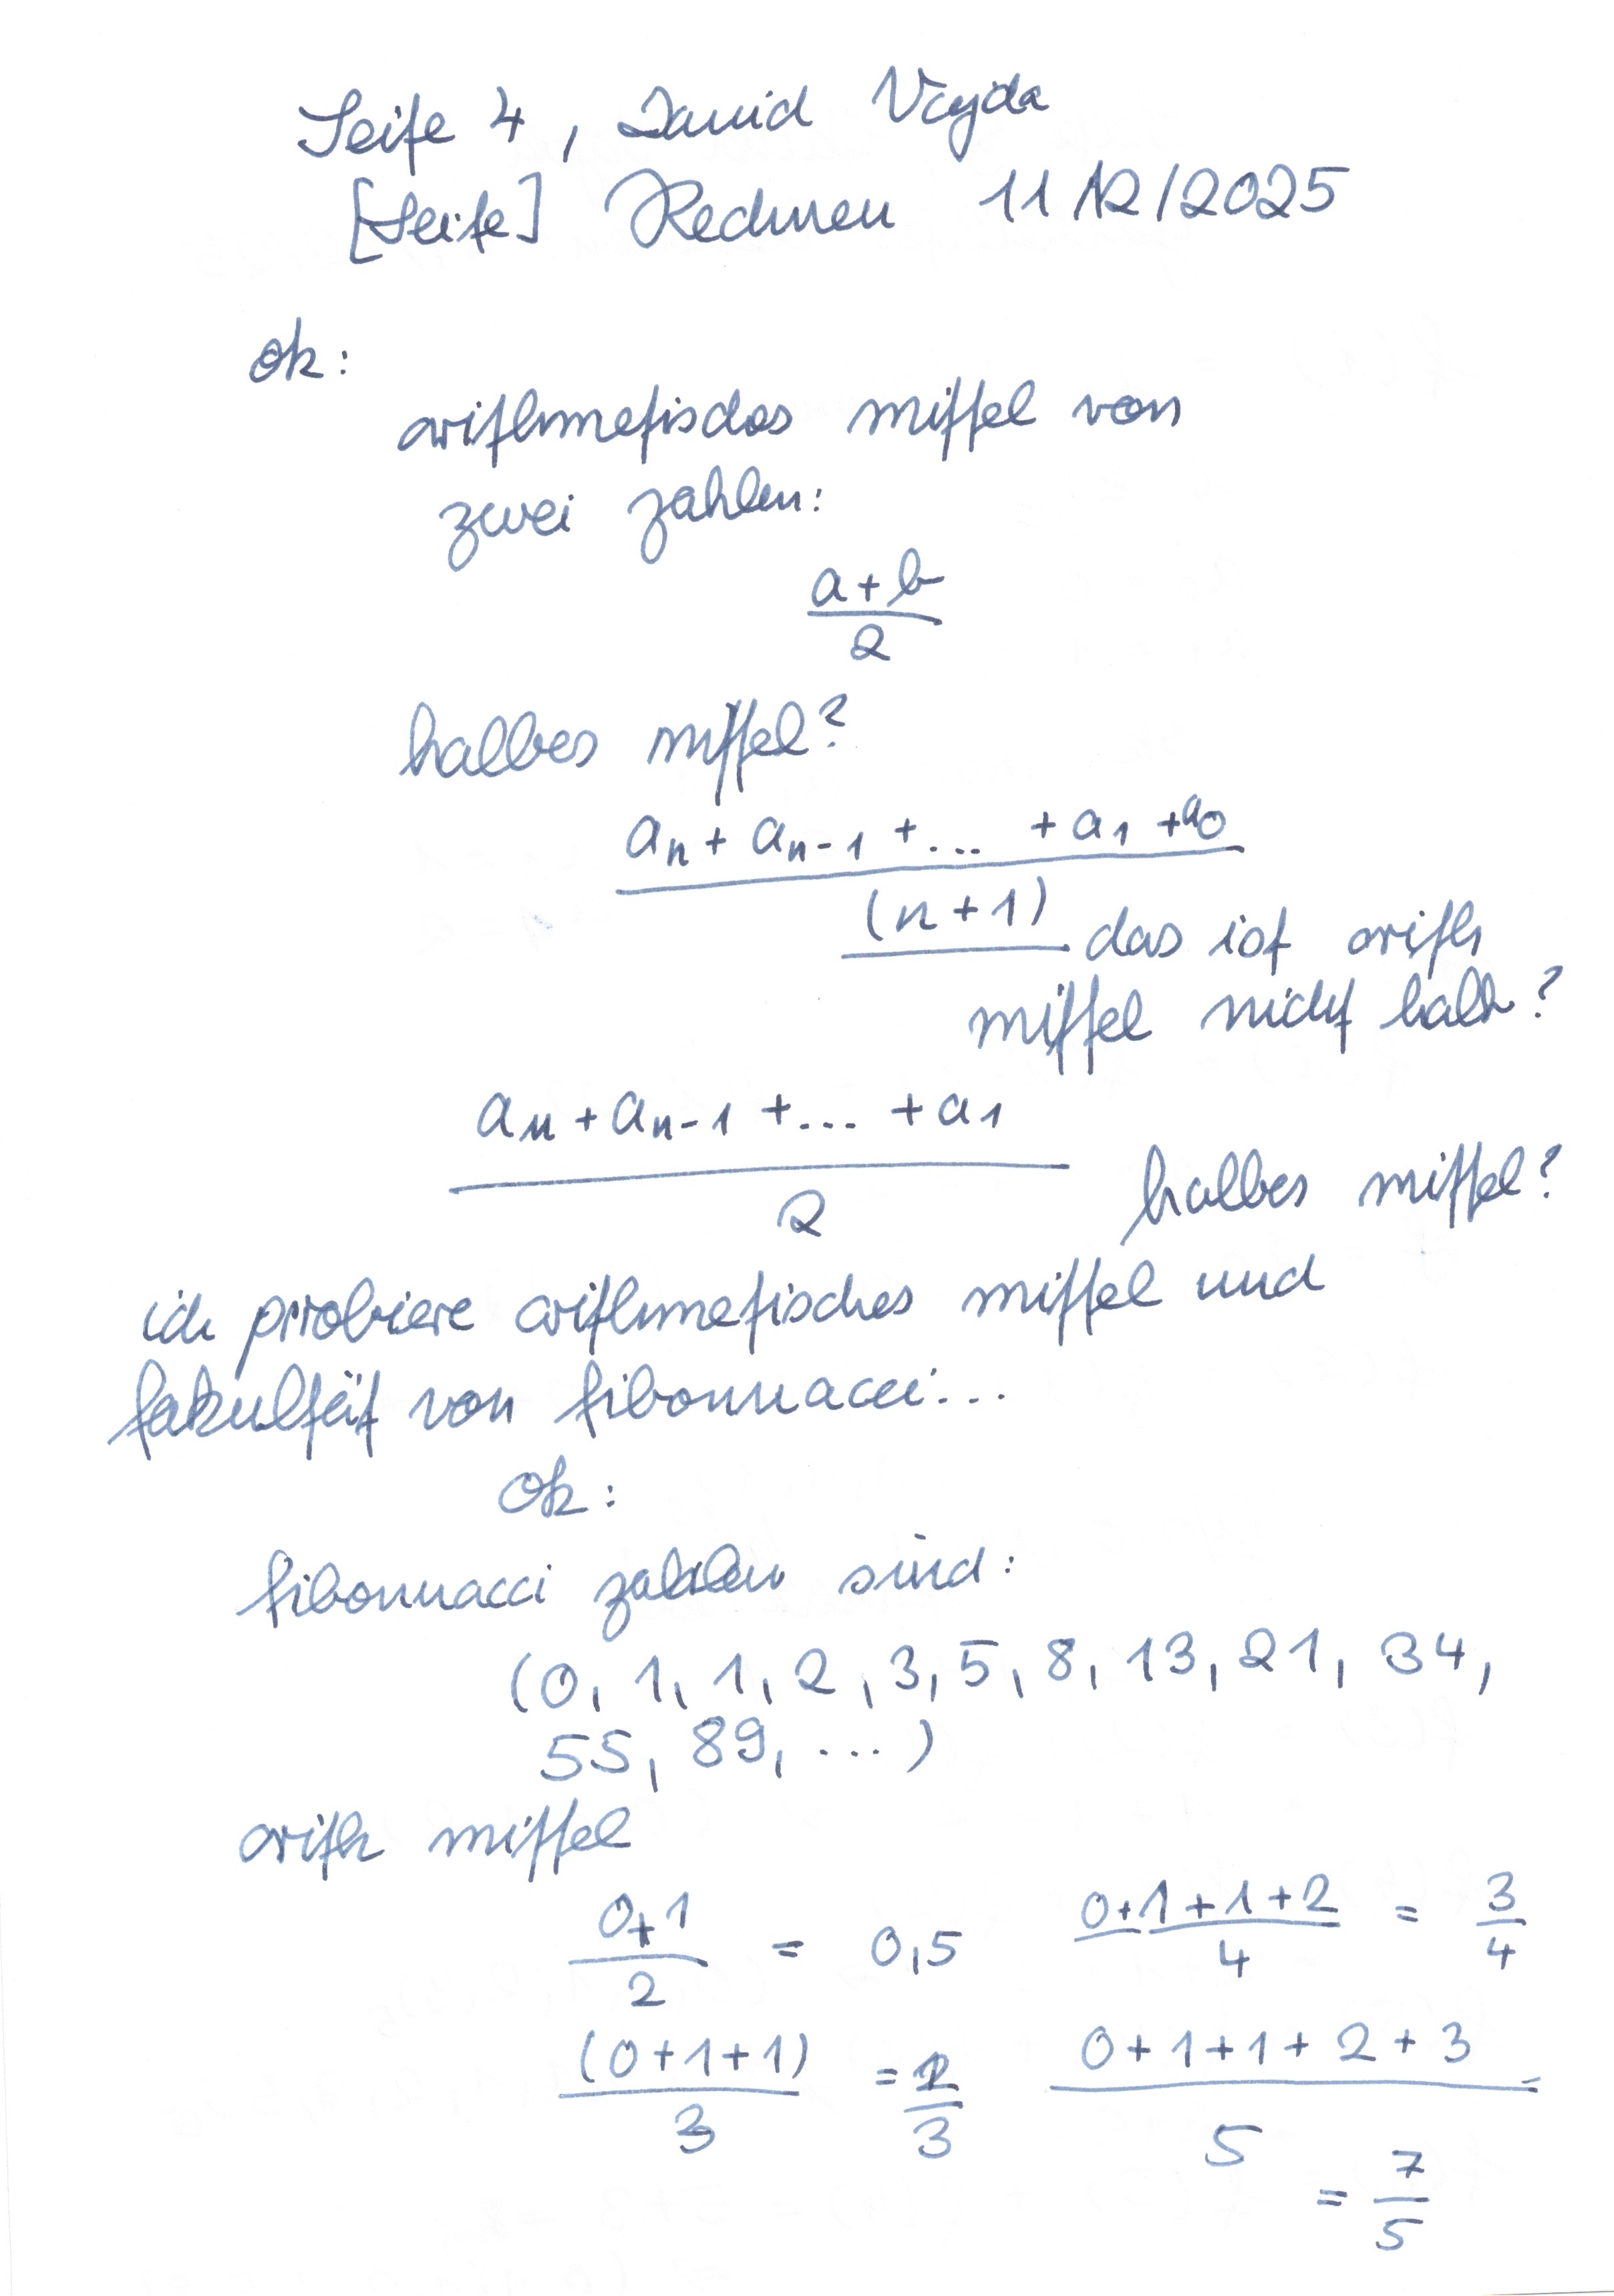 Seite 4, David Vajda
[Seite] Rechnen 11/12/2025
ok:
arithmetisches mittel von
zwei zahlen:
a + b
2
halbes mittel?
aₙ + aₙ₋₁ + ... + a₁ + a₀
(n + 1) das ist arith
mittel nicht halb?
aₙ + aₙ₋₁ + ... + a₁
2 halbes mittel?
ich probiere arithmetisches mittel und
fakultät von fibonnacci...
ok:
fibonnacci zahlen sind:
(0, 1, 1, 2, 3, 5, 8, 13, 21, 34,
55, 89, ...)
arith mittel
0+1/2 = 0,5 0+1+1+2/4 = 3/4
(0+1+1)/3 = 2/3 0+1+1+2+3/5 =
= 7/5